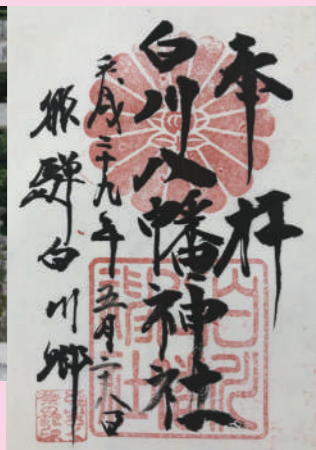 奉拝
白川八幡神社
平成二十九年五月二十八日
飛騨白川郷